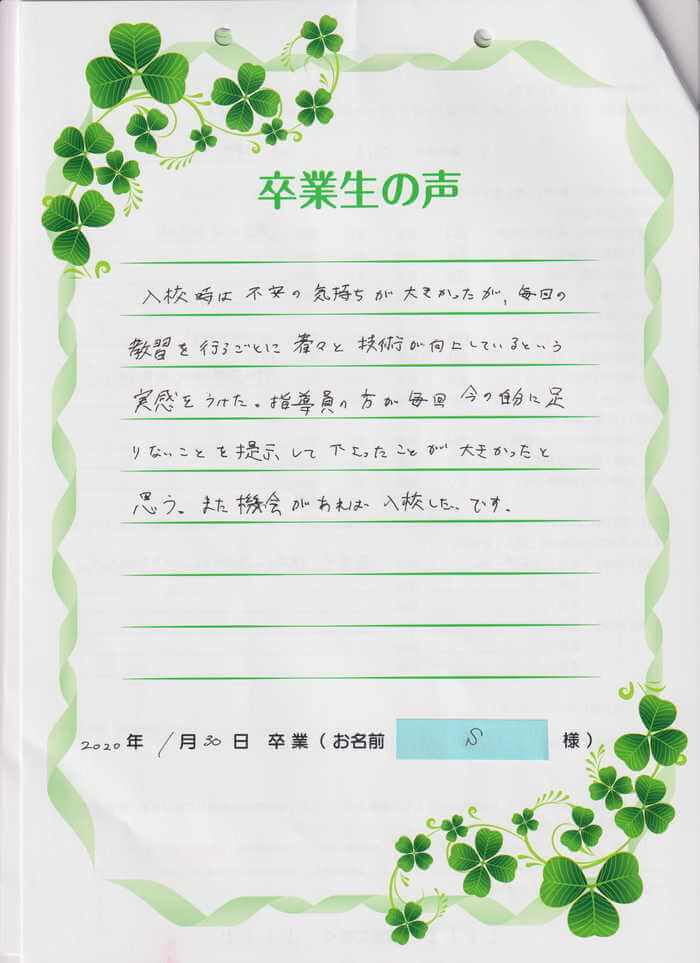 卒業生の声
入校時は不安の気持ちが大きかったが、毎回の
教習を行るごとに着々と技術が向上しているという
実感をうけた。指導員の方が毎回今の自分に足
りないことを提示して下さったことが大きかったと
思う。また機会があれば入校したいです。
2020年 1月30日 卒業（お名前 S 様）